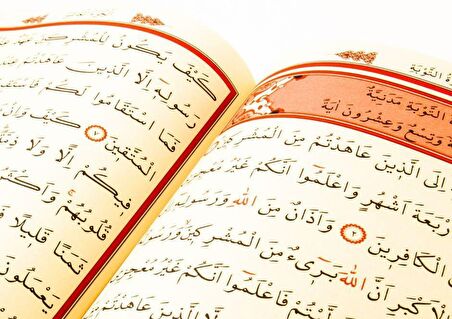 التَّوْبَةِ
التَّوْبَةِ مَدَنِيَّةٌ
وَتِسْعٌ وَعِشْرُونَ اٰيَةً
اِلَى الَّذِينَ عَاهَدْتُمْ مِنَ الْمُشْرِكِينَ
اَرْبَعَةَ اَشْهُرٍ وَاعْلَمُوا اَنَّكُمْ غَيْرُ
الْكَافِرِينَ ٢ وَاَذَانٌ مِنَ اللّٰهِ وَرَسُولِهِ
اَنَّ اللّٰهَ بَرِىءٌ مِنَ الْمُشْرِكِينَ وَرَسُولُهُ
فَاعْلَمُوا اَنَّكُمْ غَيْرُ
عَاهَدْتُمْ مِنَ
كَيْفَ يَكُونُ لِلْمُشْرِكِينَ
رَسُولِهِ اِلَّا الَّذِينَ عَاهَدْتُمْ
فَمَا اسْتَقَامُوا لَكُمْ
الْمُتَّقِينَ ٧ كَيْفَ وَاِنْ
فِيكُمْ اِلًّا وَلَا ذِمَّةً
قُلُوبُهُمْ
ثَمَنًا قَلِيلًا
يَعْمَلُونَ